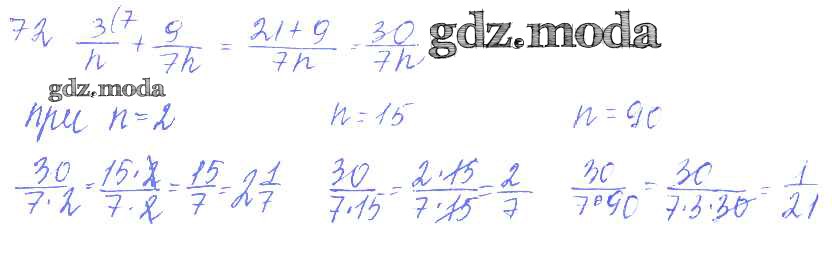 72 3(7/n + 9/7n = 21+9/7n = 30/7n gdz.moda
gdz.moda
при n=2 n=15 n=90
30/7·2 = 15·2/7·2 = 15/7 = 2 1/7 30/7·15 = 2·15/7·15 = 2/7 30/7·90 = 30/7·3·30 = 1/21